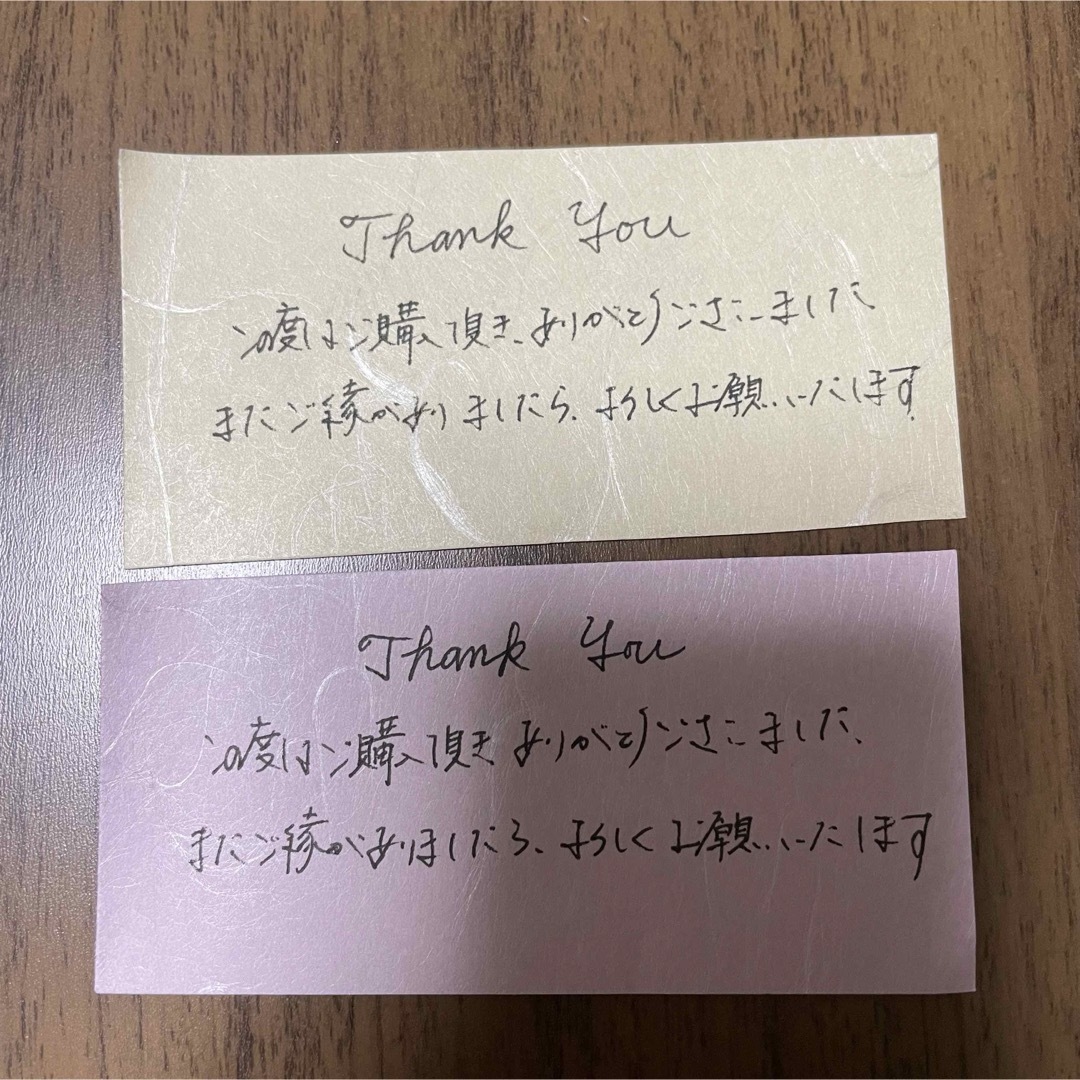 Thank You
この度はご購入頂き、ありがとうございました
またご縁がありましたら、よろしくお願いいたします。
Thank You
この度はご購入頂き ありがとうございました、
またご縁がありましたら、よろしくお願いいたします